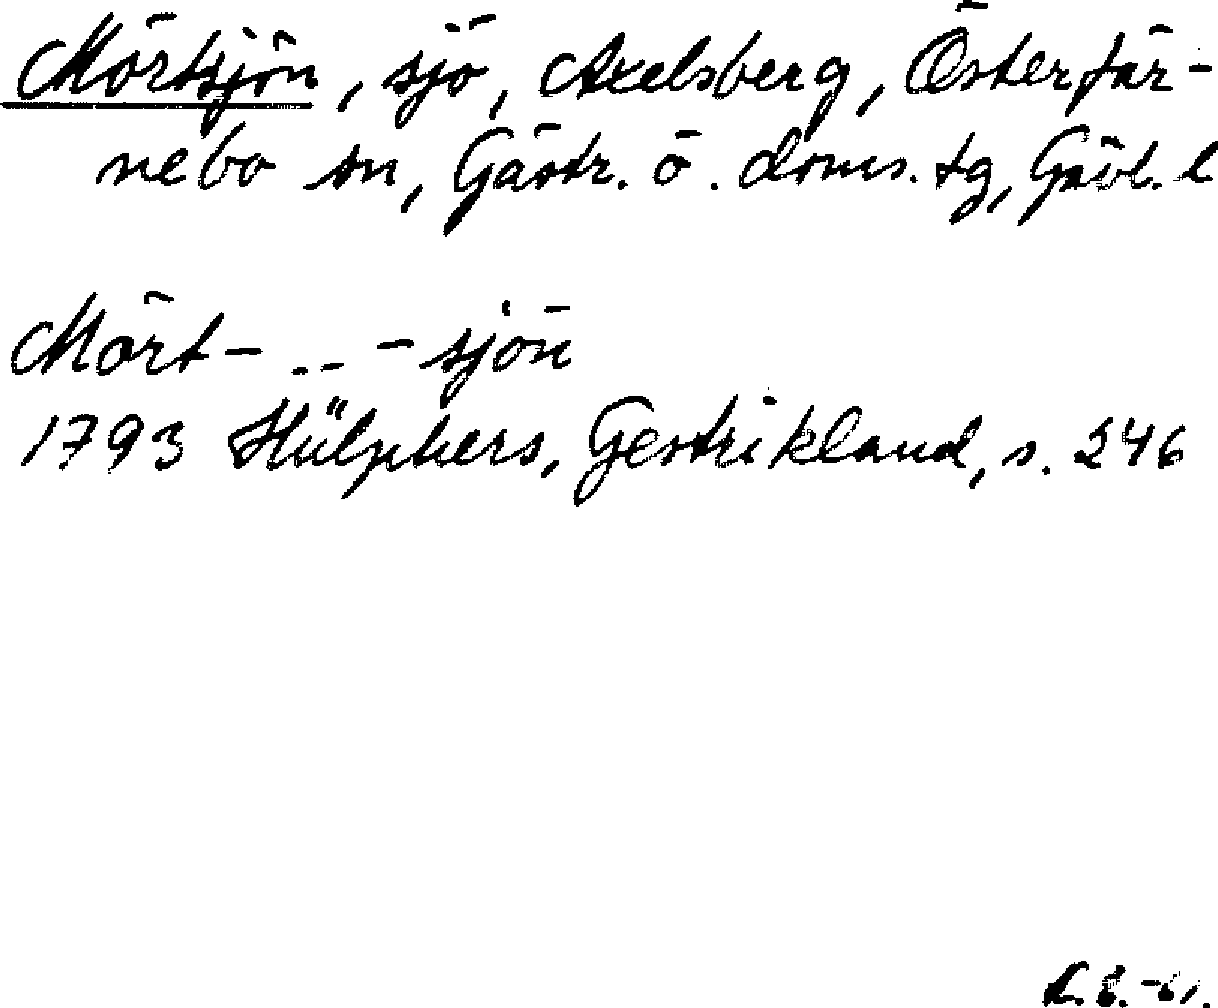 Mörtsjön, sjö, Axelsberg, Österfär-
nebo sn, Gästr. ö. doms. tg, Gävl. l
Mört- .. - -sjön
1793 Hülphers, Gestrikland, s. 246